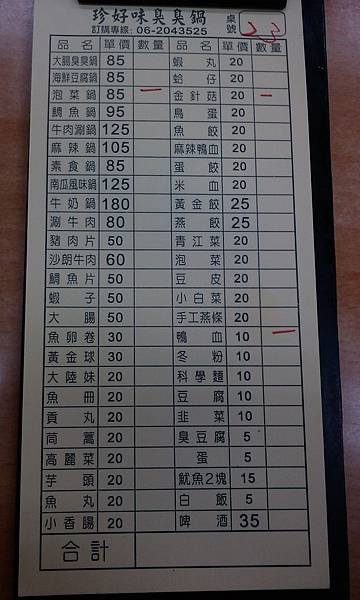 珍好味臭臭鍋
訂購專線: 06-2043525
桌號 23
品名 單價 數量 品名 單價 數量
大腸臭臭鍋 85 蝦丸 20
海鮮豆腐鍋 85 蛤仔 20
泡菜鍋 85 一 金針菇 20 一
鯛魚鍋 95 鳥蛋 20
牛肉涮鍋 125 魚餃 20
麻辣鍋 105 麻辣鴨血 20
素食鍋 85 蛋餃 20
南瓜風味鍋 125 米血 20
牛奶鍋 180 黃金餃 25
涮牛肉 80 燕餃 25
豬肉片 50 青江菜 20
沙朗牛肉 60 泡菜 20
鯛魚片 50 豆皮 20
蝦子 50 小白菜 20
大腸 50 手工蒸條 20
魚卵卷 30 鴨血 10 一
黃金球 30 冬粉 10
大陸妹 20 科學麵 10
魚冊 20 豆腐 10
貢丸 20 韭菜 10
茼蒿 20 臭豆腐 5
高麗菜 20 蛋 5
芋頭 20 魷魚2塊 15
魚丸 20 白飯 5
小香腸 20 啤酒 35
合計